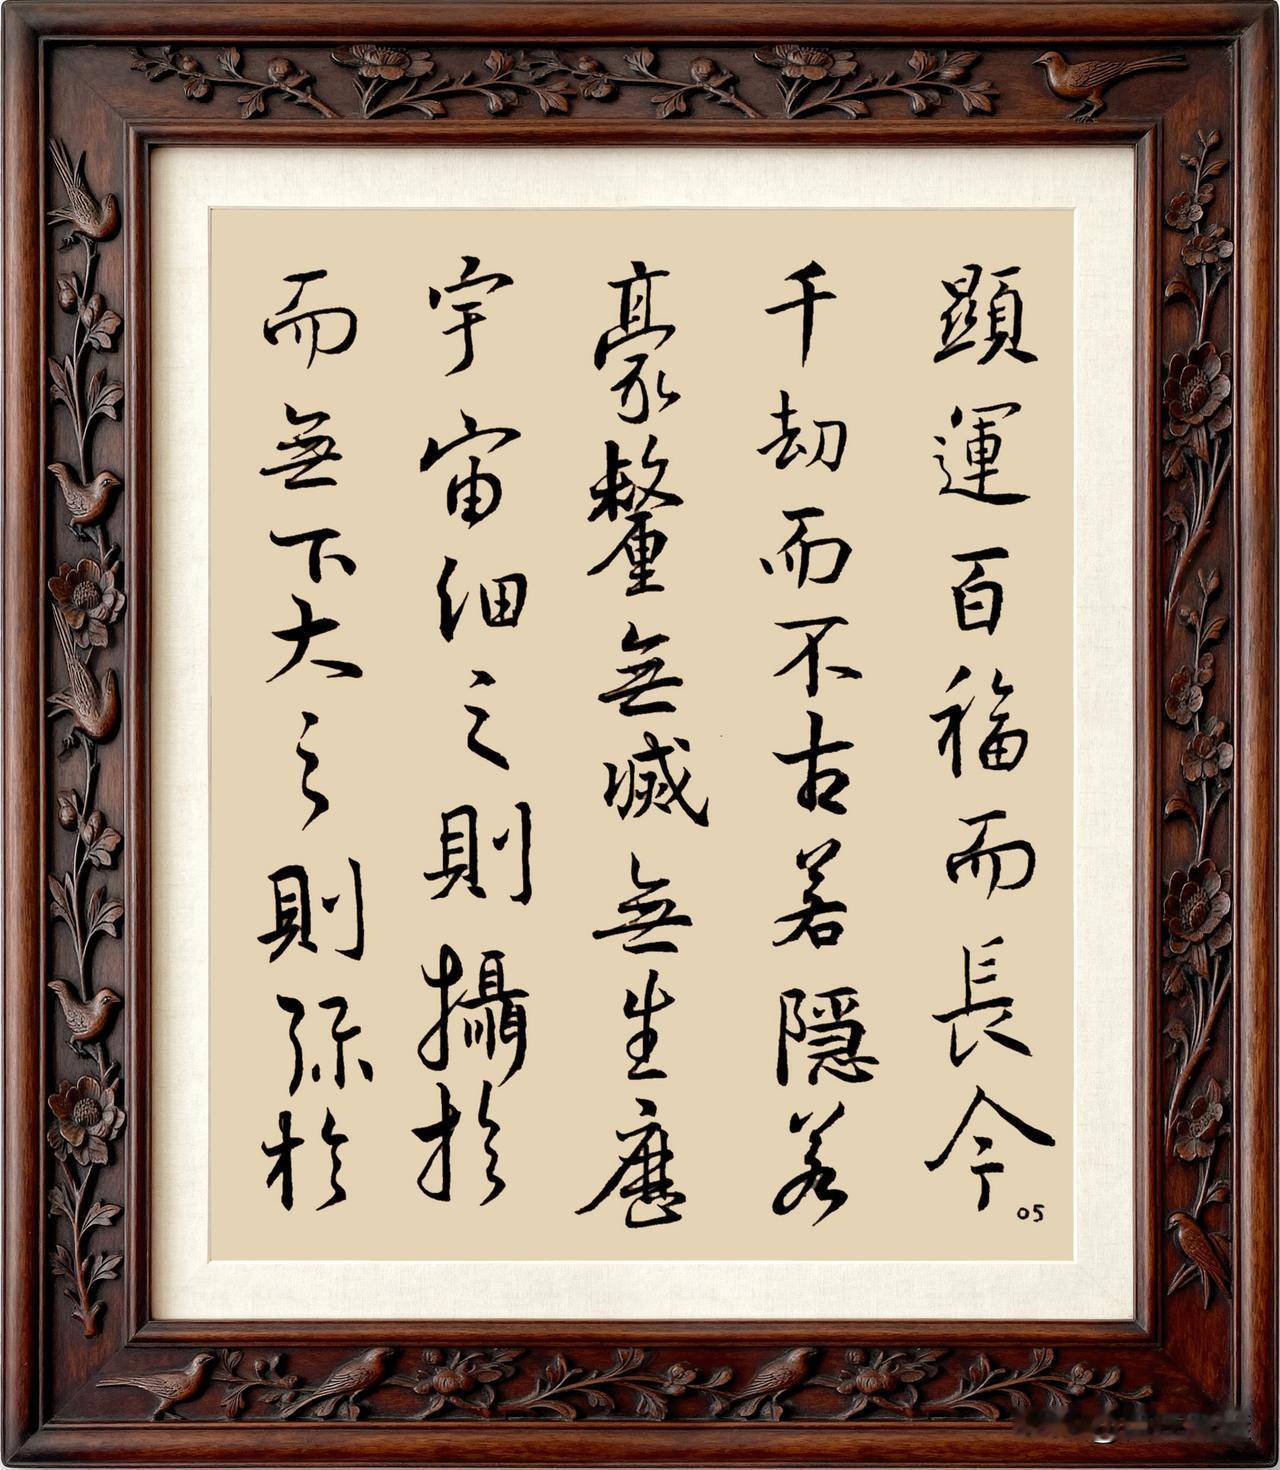 而無下大之則弥於
宇宙細之則攝於
豪釐無滅無生歷
千劫而不古若隱若
顯運百福而長今
05